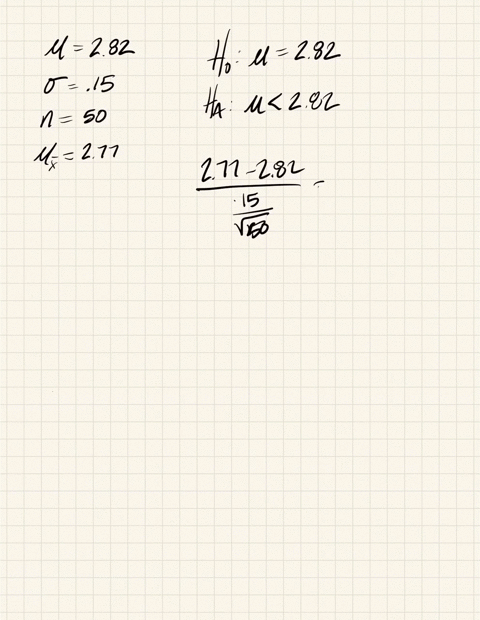 μ = 2.82
σ = .15
n = 50
μx̄ = 2.77
H₀: μ = 2.82
HA: μ < 2.82
2.77 - 2.82
.15
√50
=